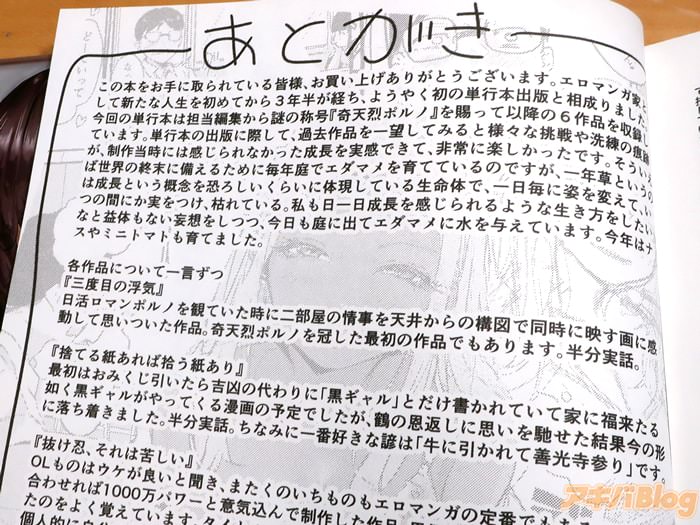 あとがき
この本をお手に取られている皆様、お買い上げありがとうございます。エロマンガ家と
して新たな人生を初めてから3年半が経ち、ようやく初の単行本出版と相成りました。
今回の単行本は担当編集から謎の称号『奇天烈ポルノ』を賜って以降の6作品を収録し
ています。単行本の出版に際して、過去作品を一望してみると様々な挑戦や洗練の痕跡
が、制作当時には感じられなかった成長を実感できて、非常に楽しかったです。そういえ
ば世界の終末に備えるために毎年庭でエダマメを育てているのですが、一年草というの
は成長という概念を恐ろしいくらいに体現している生命体で、一日毎に姿を変えて、い
つの間にか実をつけ、枯れている。私も日一日成長を感じられるような生き方をしたい
なと益体もない妄想をしつつ、今日も庭に出てエダマメに水を与えています。今年はナ
スやミニトマトも育てました。
各作品について一言ずつ
『三度目の浮気』
日活ロマンポルノを観ていた時に二部屋の情事を天井からの構図で同時に映す画に感
動して思いついた作品。奇天烈ポルノを冠した最初の作品でもあります。半分実話。
『捨てる紙あれば拾う紙あり』
最初はおみくじ引いたら吉凶の代わりに「黒ギャル」とだけ書かれていて家に福来たる
如く黒ギャルがやってくる漫画の予定でしたが、鶴の恩返しに思いを馳せた結果今の形
に落ち着きました。半分実話。ちなみに一番好きな諺は「牛に引かれて善光寺参り」です
『抜け忍、それは苦しい』
OLものはウケが良いと聞き、またくのいちものもエロマンガの定番でも
合わせれば1000万パワーと意気込んで制作した作品
たのをよく覚えています。
個人的に
アキバBlog